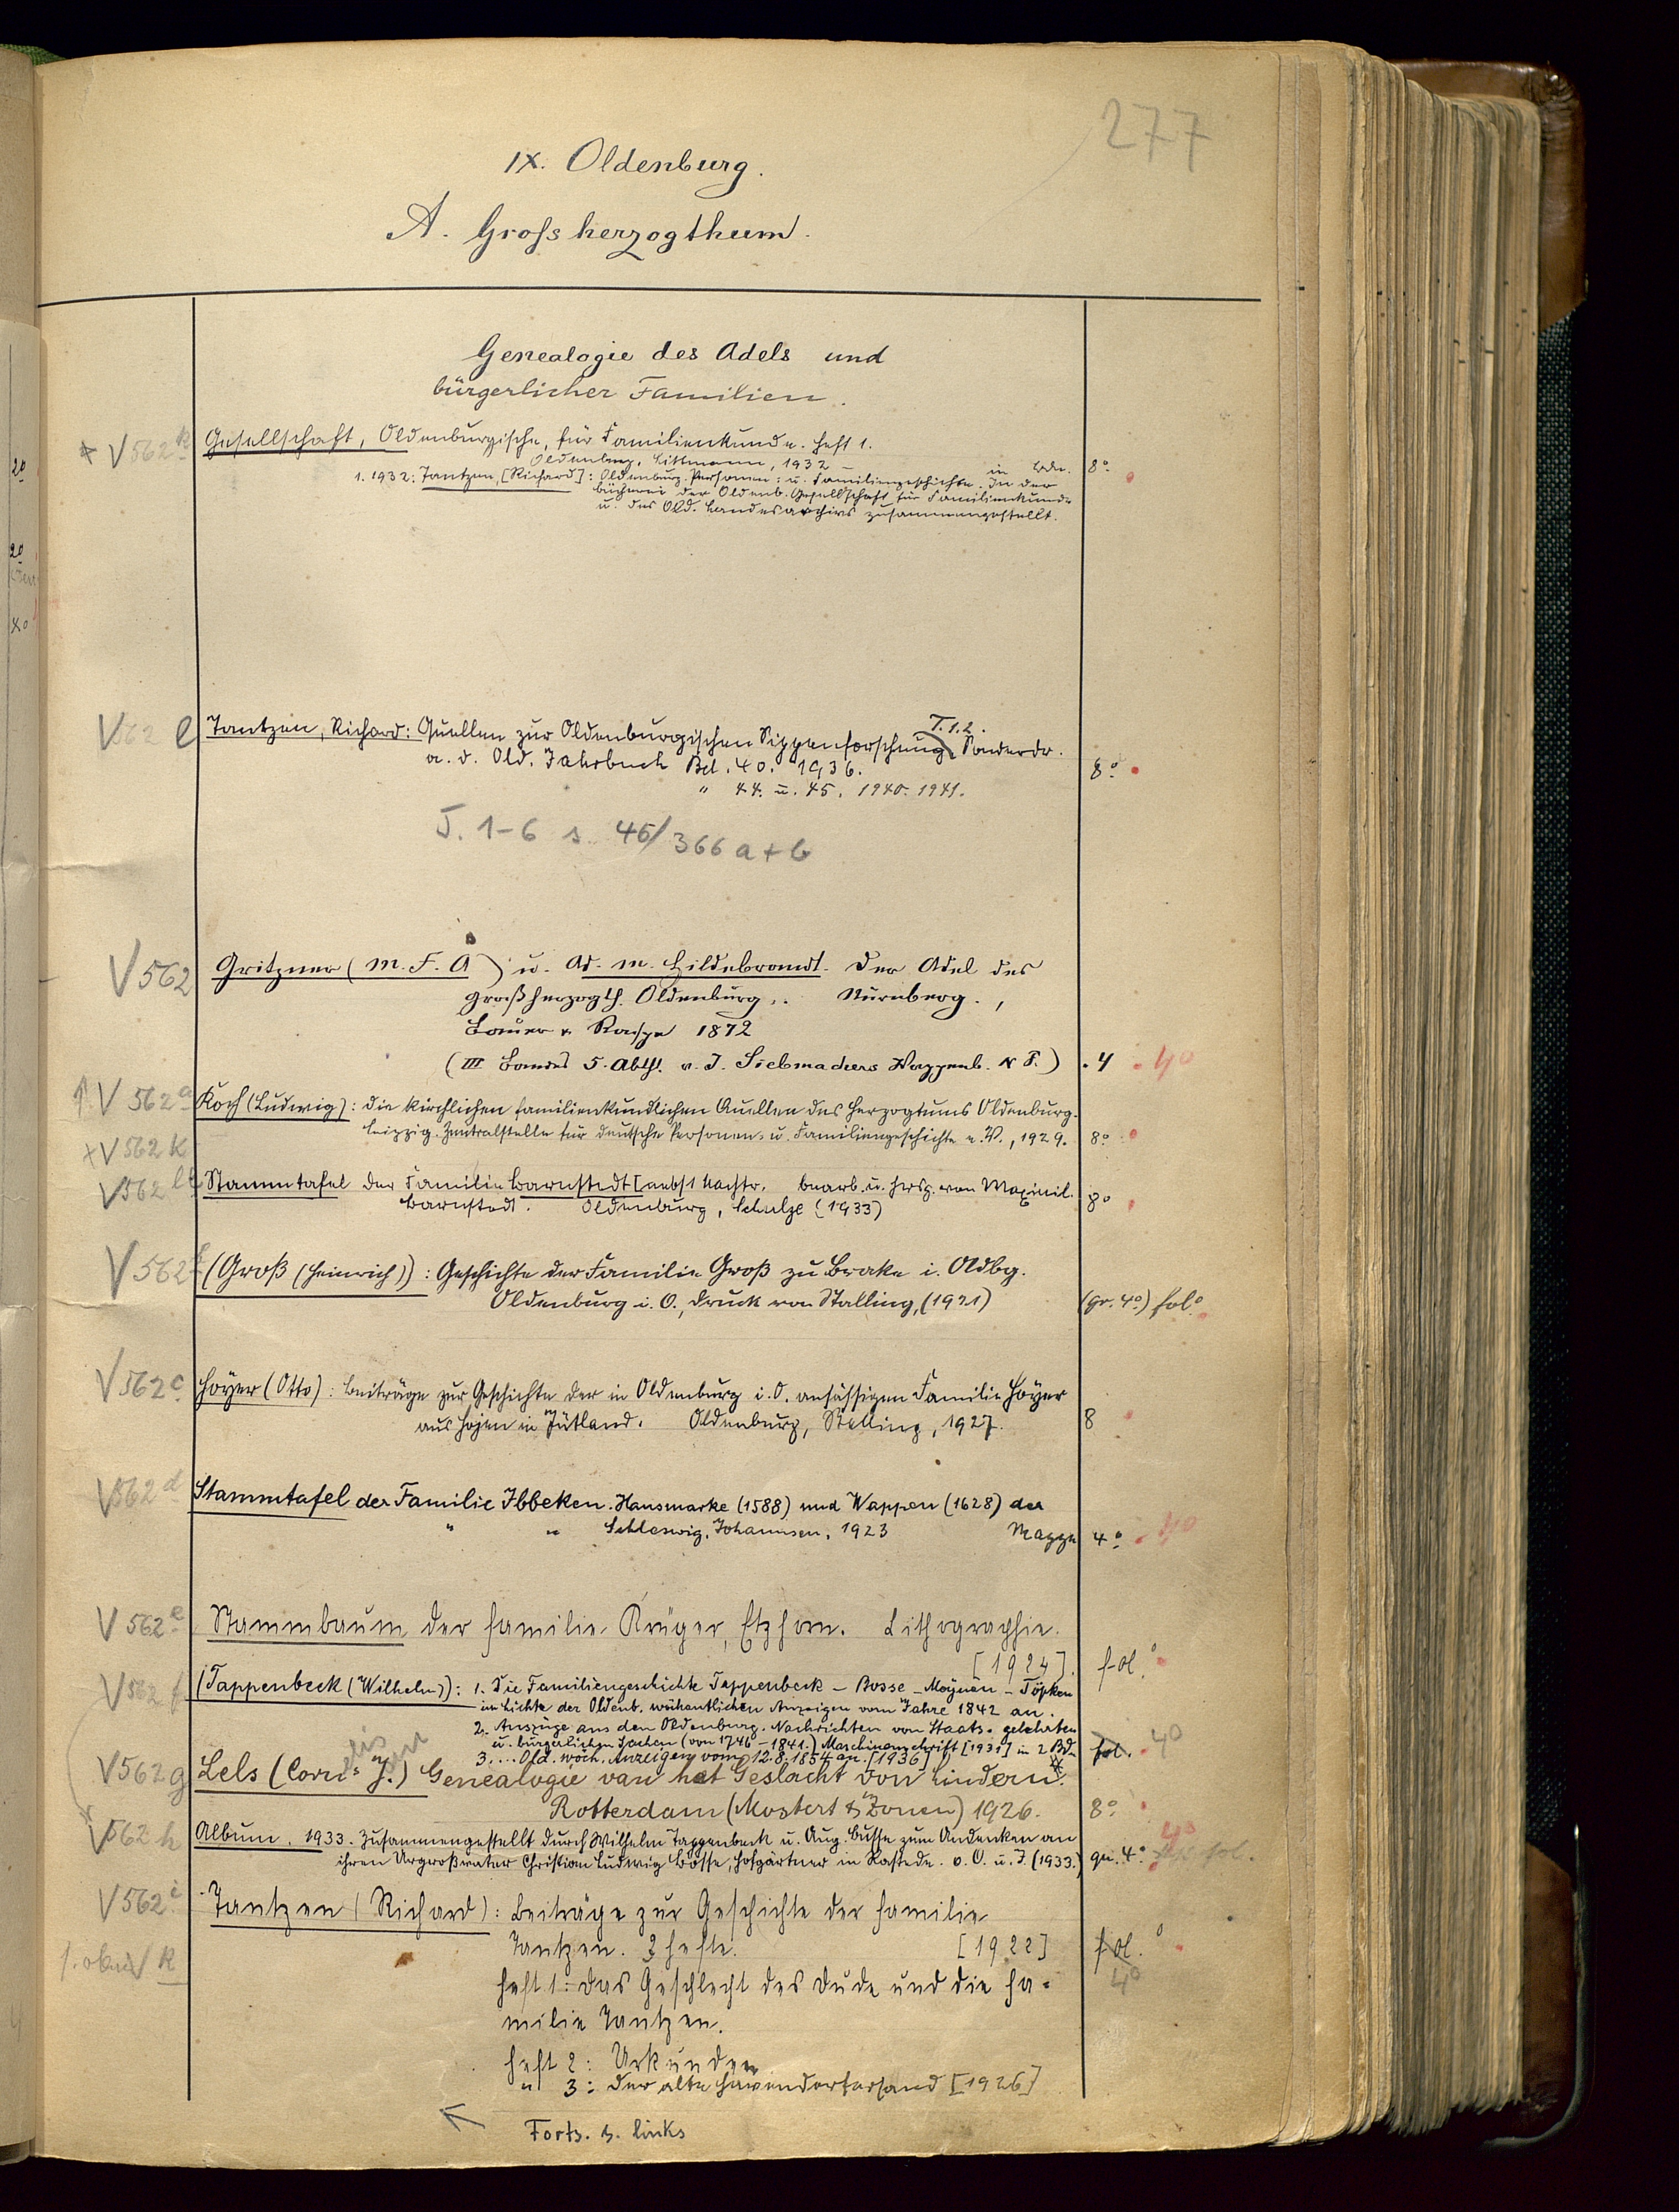 277
IX. Oldenburg.
A. Grossherzogthum.
Genealogie des Adels und
bürgerlicher Familien.
V 562 k Gesellschaft, Oldenburgische, für Familienkunde. Heft 1.
Oldenburg, Littmann, 1932 – in Bdn. 8°
1. 1932: Tantzen, [Richard]: Oldenburg. Personen- u. Familiengeschichte. In der
Bücherei der Oldenb. Gesellschaft für Familienkunde
u. des Old. Landesarchivs zusammengestellt.
T. 1.2.
V 562 l Tantzen, Richard: Quellen zur Oldenburgischen Sippenforschung. Sonderdr.
a. d. Old. Jahrbuch Bd. 40. 1936. 8°
" 44. u. 45. 1940. 1941.
T. 1-6 s. 46/366 a+b
V 562 Gritzner (M. F. A) u. Ad. M. Hildebrandt. Der Adel des
Großherzogth. Oldenburg. Nürnberg.,
Bauer u. Raspe 1872
(III Bandes 5. Abth. v. J. Siebmachers Wappenb. N F.) 4 4°
V 562 a Koch (Ludwig): Die kirchlichen familienkundlichen Quellen des Herzogtums Oldenburg.
V 562 k Leipzig. Zentralstelle für Deutsche Personen- u. Familiengeschichte e. V., 1929. 8°
V 562 Stammtafel der Familie Barnstedt [nebst Nachtr. bearb. u. hrsg. von Maximil.
Barnstedt. Oldenburg, Schulze (1933) 8°
V 562 (Groß (Heinrich)): Geschichte der Familie Groß zu Brake i. Oldbg.
Oldenburg i. O., Druck von Stalling, (1921) (gr. 4°) fol°
V 562 c Hoyer (Otto): Beiträge zur Geschichte der in Oldenburg i. O. ansässigen Familie Hoyer
aus Hojen in Jütland. Oldenburg, Stalling, 1927. 8
V 562 d Stammtafel der Familie Ibbeken. Hausmarke (1588) und Wappen (1628) der
" " Schleswig, Johannsen, 1923 Mappe 4° 4°
V 562 e Stammbaum der Familie Krüger, Etzhorn. Lithographie.
[1924]. fol.°
V 562 f (Tappenbeck (Wilhelm)): 1. Die Familiengeschichte Tappenbeck – Bosse – Meynen – Töpken
im Lichte der Oldenb. wöchentlichen Anzeigen vom Jahre 1842 an.
2. Auszüge aus den Oldenburg. Nachrichten von Staats- gelehrten
u. bürgerlichen Sachen (von 1746 – 1841.) Maschinenschrift [1931] in 2 Bdn
3. ... Old. wöch. Anzeigen vom 12.8.1854 an. [1936] fol. 4°
V 562 g Lels (Corns J.) Genealogie van het Geslacht von Lindern.
Rotterdam (Mostert & Zonen) 1926. 8°
V 562 h Album. 1933. Zusammengestellt durch Wilhelm Tappenbeck u. Aug. Busse zum Andenken an
ihren Urgroßvater Christian Ludwig Bosse, Hofgärtner in Rastede. o. O. u. J. (1933.) qu. 4° 4°
V 562 i Tantzen (Richard): Beiträge zur Geschichte der Familie
s. oben V k Tantzen. 3 Hefte. [1922] fol.° 4°
Heft 1: Das Geschlecht des Dude und die Fa-
milie Tantzen.
Heft 2: Urkunden
" 3: Der alte Havendorfersand [1926]
Forts. s. links